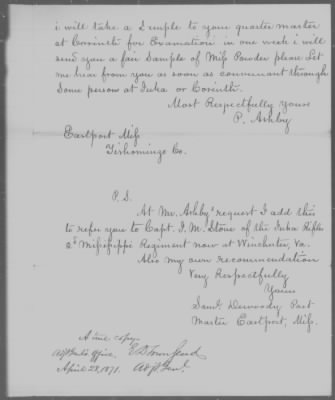 i will take a Simple to your quarter master
at Corinth for Examation in one week i will
send you a fair Sample of Miss Powder please Let
me hear from you as soon as convenant through
Some person at Iuka or Corinth.
Most Respectfully yours
P. Ashby
Eastport Miss
Tishomingo Co.
P.S.
At Mr. Ashby's request I add this
to refer you to Capt. J. M. Stone of the Iuka Rifles
2d Mississippi Regiment now at Winchester, Va.
Also my own recommendation
Very Respectfully
Yours
Saml. Dewoody Post
Master Eastport, Miss.
A true copy.
Adjutant's Office, E D Townsend
April 28, 1871. Adjt. Genl.